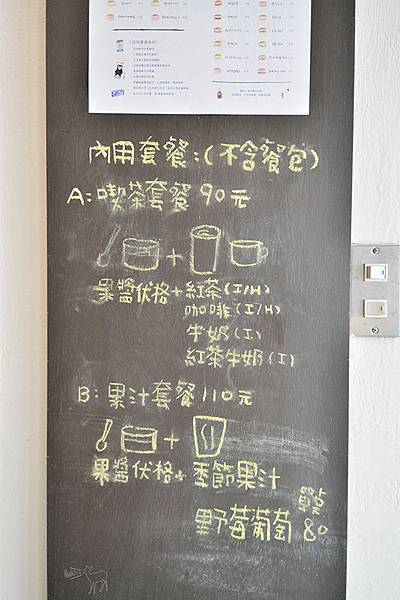 內用套餐:(不含餐包)
A:喫茶套餐 90元
+
果醬優格+紅茶(I/H)
咖啡(I/H)
牛奶(I)
紅茶牛奶(I)
B:果汁套餐 110元
+
果醬優格+季節果汁
單点
野莓葡萄 80